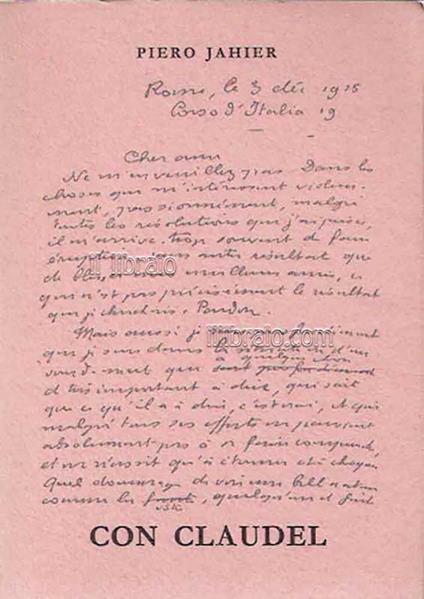 PIERO JAHIER
Rome, le 3 déc 1915
Corso d'Italia 19
Cher ami
Ne m'en veuillez pas. Dans les
choses qui m'intéressent violem-
ment, passionnément, malgré
toutes les résolutions que j'ai prises,
il m'arrive trop souvent de faire
sans autre résultat que
de mes meilleurs amis, ce
qui n'est pas précisément le résultat
que je cherchais. Pardon.
Mais aussi je
que je suis dans la situation d'un
sourd-muet qui quelque chose
d très important à dire, qui sait
que ce qu'il a à dire, c'est vrai, et qui
malgré tous ses efforts ne parvient
absolument pas à se faire comprendre,
et ne réussit qu'à étonner et à choquer
Quel dommage de voir une belle nature
comme la quelqu'un et fait
il libraio
illibraio.com
CON CLAUDEL